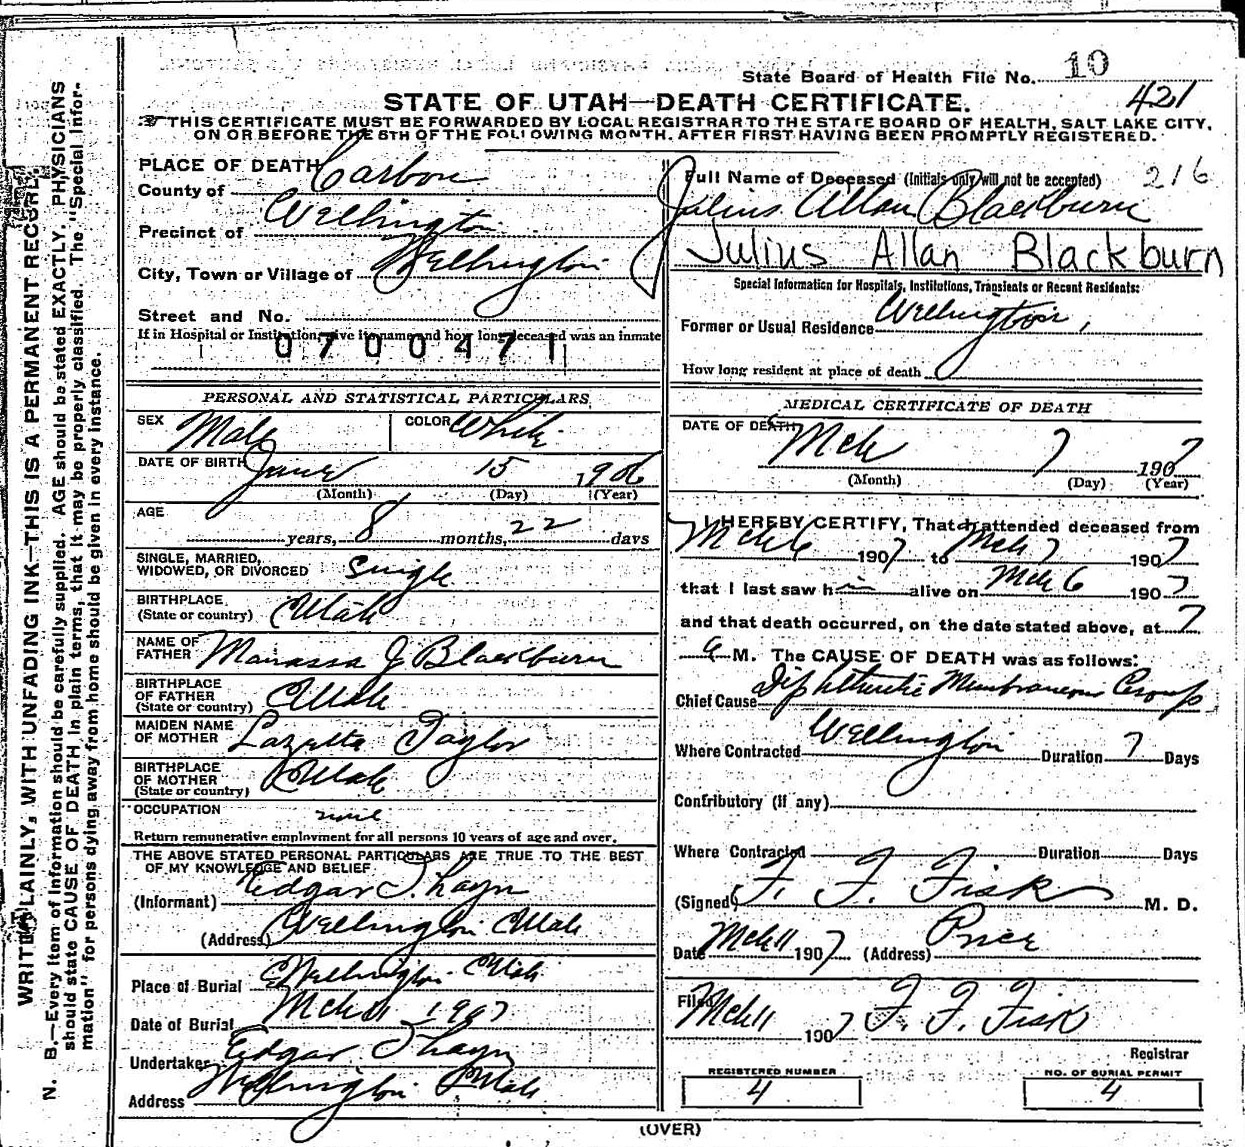 State Board of Health File No. 10
421
STATE OF UTAH—DEATH CERTIFICATE.
THIS CERTIFICATE MUST BE FORWARDED BY LOCAL REGISTRAR TO THE STATE BOARD OF HEALTH, SALT LAKE CITY,
ON OR BEFORE THE 5TH OF THE FOLLOWING MONTH, AFTER FIRST HAVING BEEN PROMPTLY REGISTERED.
WRITE PLAINLY, WITH UNFADING INK—THIS IS A PERMANENT RECORD.
N. B.—Every item of information should be carefully supplied. AGE should be stated EXACTLY. PHYSICIANS
should state CAUSE OF DEATH in plain terms, that it may be properly classified. The "Special Infor-
mation" for persons dying away from home should be given in every instance.
PLACE OF DEATH
County of Carbon
Precinct of Wellington
City, Town or Village of Wellington
Street and No.
If in Hospital or Institution, give its name and how long deceased was an inmate
0700471
PERSONAL AND STATISTICAL PARTICULARS
SEX Male COLOR White
DATE OF BIRTH June 15 1906
(Month) (Day) (Year)
AGE
years, 8 months, 22 days
SINGLE, MARRIED,
WIDOWED, OR DIVORCED Single
BIRTHPLACE
(State or country) Utah
NAME OF
FATHER Manassa J Blackburn
BIRTHPLACE
OF FATHER
(State or country) Utah
MAIDEN NAME
OF MOTHER Lazetta Taylor
BIRTHPLACE
OF MOTHER
(State or country) Utah
OCCUPATION none
Return remunerative employment for all persons 10 years of age and over.
THE ABOVE STATED PERSONAL PARTICULARS ARE TRUE TO THE BEST
OF MY KNOWLEDGE AND BELIEF
(Informant) Edgar Thayn
(Address) Wellington Utah
Place of Burial Wellington Utah
Date of Burial Mch 11 1907
Undertaker Edgar Thayn
Address Wellington Utah
Full Name of Deceased (Initials only will not be accepted) 216
Julius Allan Blackburn
Julius Allan Blackburn
Special Information for Hospitals, Institutions, Transients or Recent Residents:
Former or Usual Residence Wellington,
How long resident at place of death
MEDICAL CERTIFICATE OF DEATH
DATE OF DEATH
Mch 7 1907
(Month) (Day) (Year)
I HEREBY CERTIFY, That I attended deceased from
Mch 6 1907 to Mch 7 1907
that I last saw him alive on Mch 6 1907
and that death occurred, on the date stated above, at 7
a M. The CAUSE OF DEATH was as follows:
Chief Cause Diphtheritic Membraneous Croup
Where Contracted Wellington Duration 7 Days
Contributory (if any)
Where Contracted Duration Days
(Signed) F. F. Fisk M. D.
Date Mch 11 1907 (Address) Price
Filed Mch 11 1907 F. F. Fisk
Registrar
REGISTERED NUMBER
4
NO. OF BURIAL PERMIT
4
(OVER)